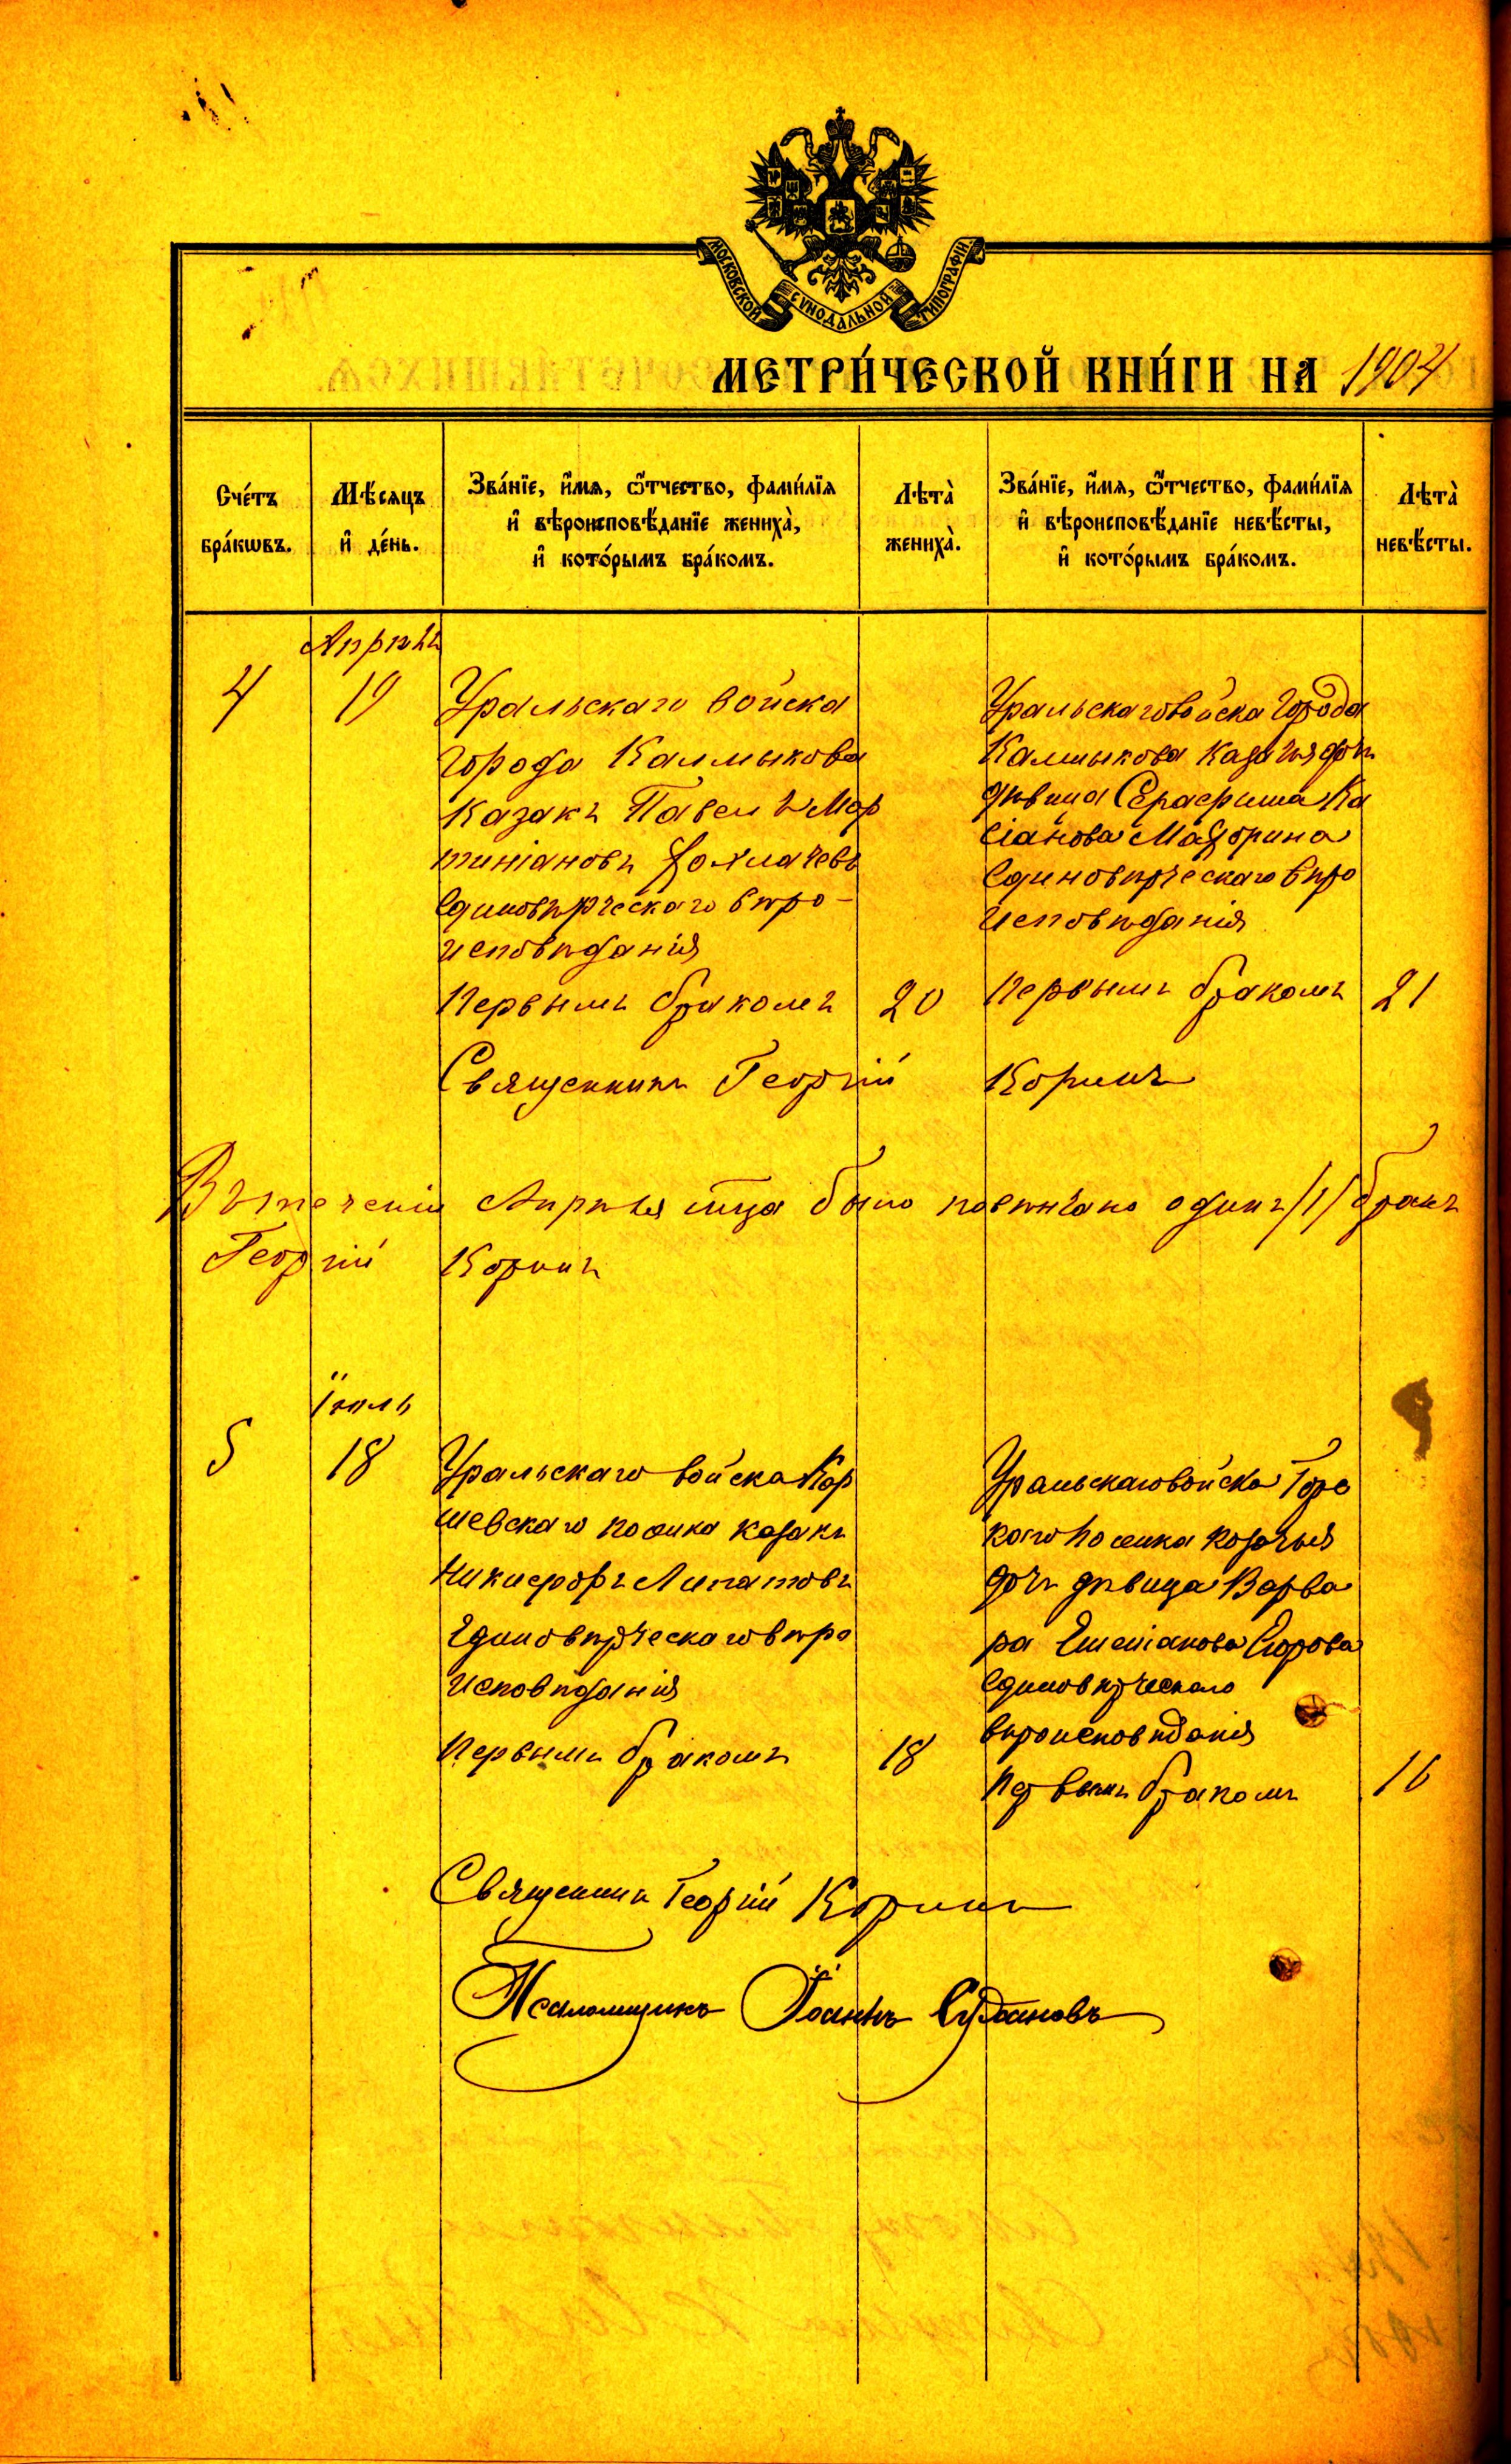 МОСКОВСКОЙ СѴНОДАЛЬНОЙ ТИПОГРАФІИ
МЕТРИ́ЧЕСКОЙ КНИ́ГИ НА 1904
Сче́тъ бра́кωвъ.
Мѣ́сяцъ и҆ де́нь.
Зва́нїе, и҆́мя, ѻ҆́тчество, фами́лїя
и҆ вѣроисповѣ́данїе жениха̀,
и҆ кото́рымъ бра́комъ.
Лѣта̀ жениха̀.
Зва́нїе, и҆́мя, ѻ҆́тчество, фами́лїя
и҆ вѣроисповѣ́данїе невѣ́сты,
и҆ кото́рымъ бра́комъ.
Лѣта̀ невѣ́сты.
Апрѣль
4 19
Уральскаго войска
города Калмыкова
казакъ Павелъ Мар
тиніановъ
Единовѣрческаго вѣро-
исповѣданія
Первымъ бракомъ 20
Уральскаго войска города
Калмыкова казачья дочь
дѣвица Серафима Ка
сіанова
Единовѣрческаго вѣро
исповѣданія
Первымъ бракомъ 21
Священникъ Георгій Коринъ
Въ теченіи Апрѣля мца было повѣнчано одинъ /1/ бракъ
Георгій Коринъ
Іюль
5 18
Уральскаго войска Кар
шевскаго посёлка казакъ
Никифоръ Липатовъ
Единовѣрческаго вѣро
исповѣданія
Первымъ бракомъ 18
Уральскаго войска Горс
каго посёлка козачья
дочь дѣвица Варва
ра Емеліанова Егорова
единовѣрческаго
вѣроисповѣданія
первымъ бракомъ 16
Священникъ Георгій Коринъ
Псаломщикъ Іоаннъ